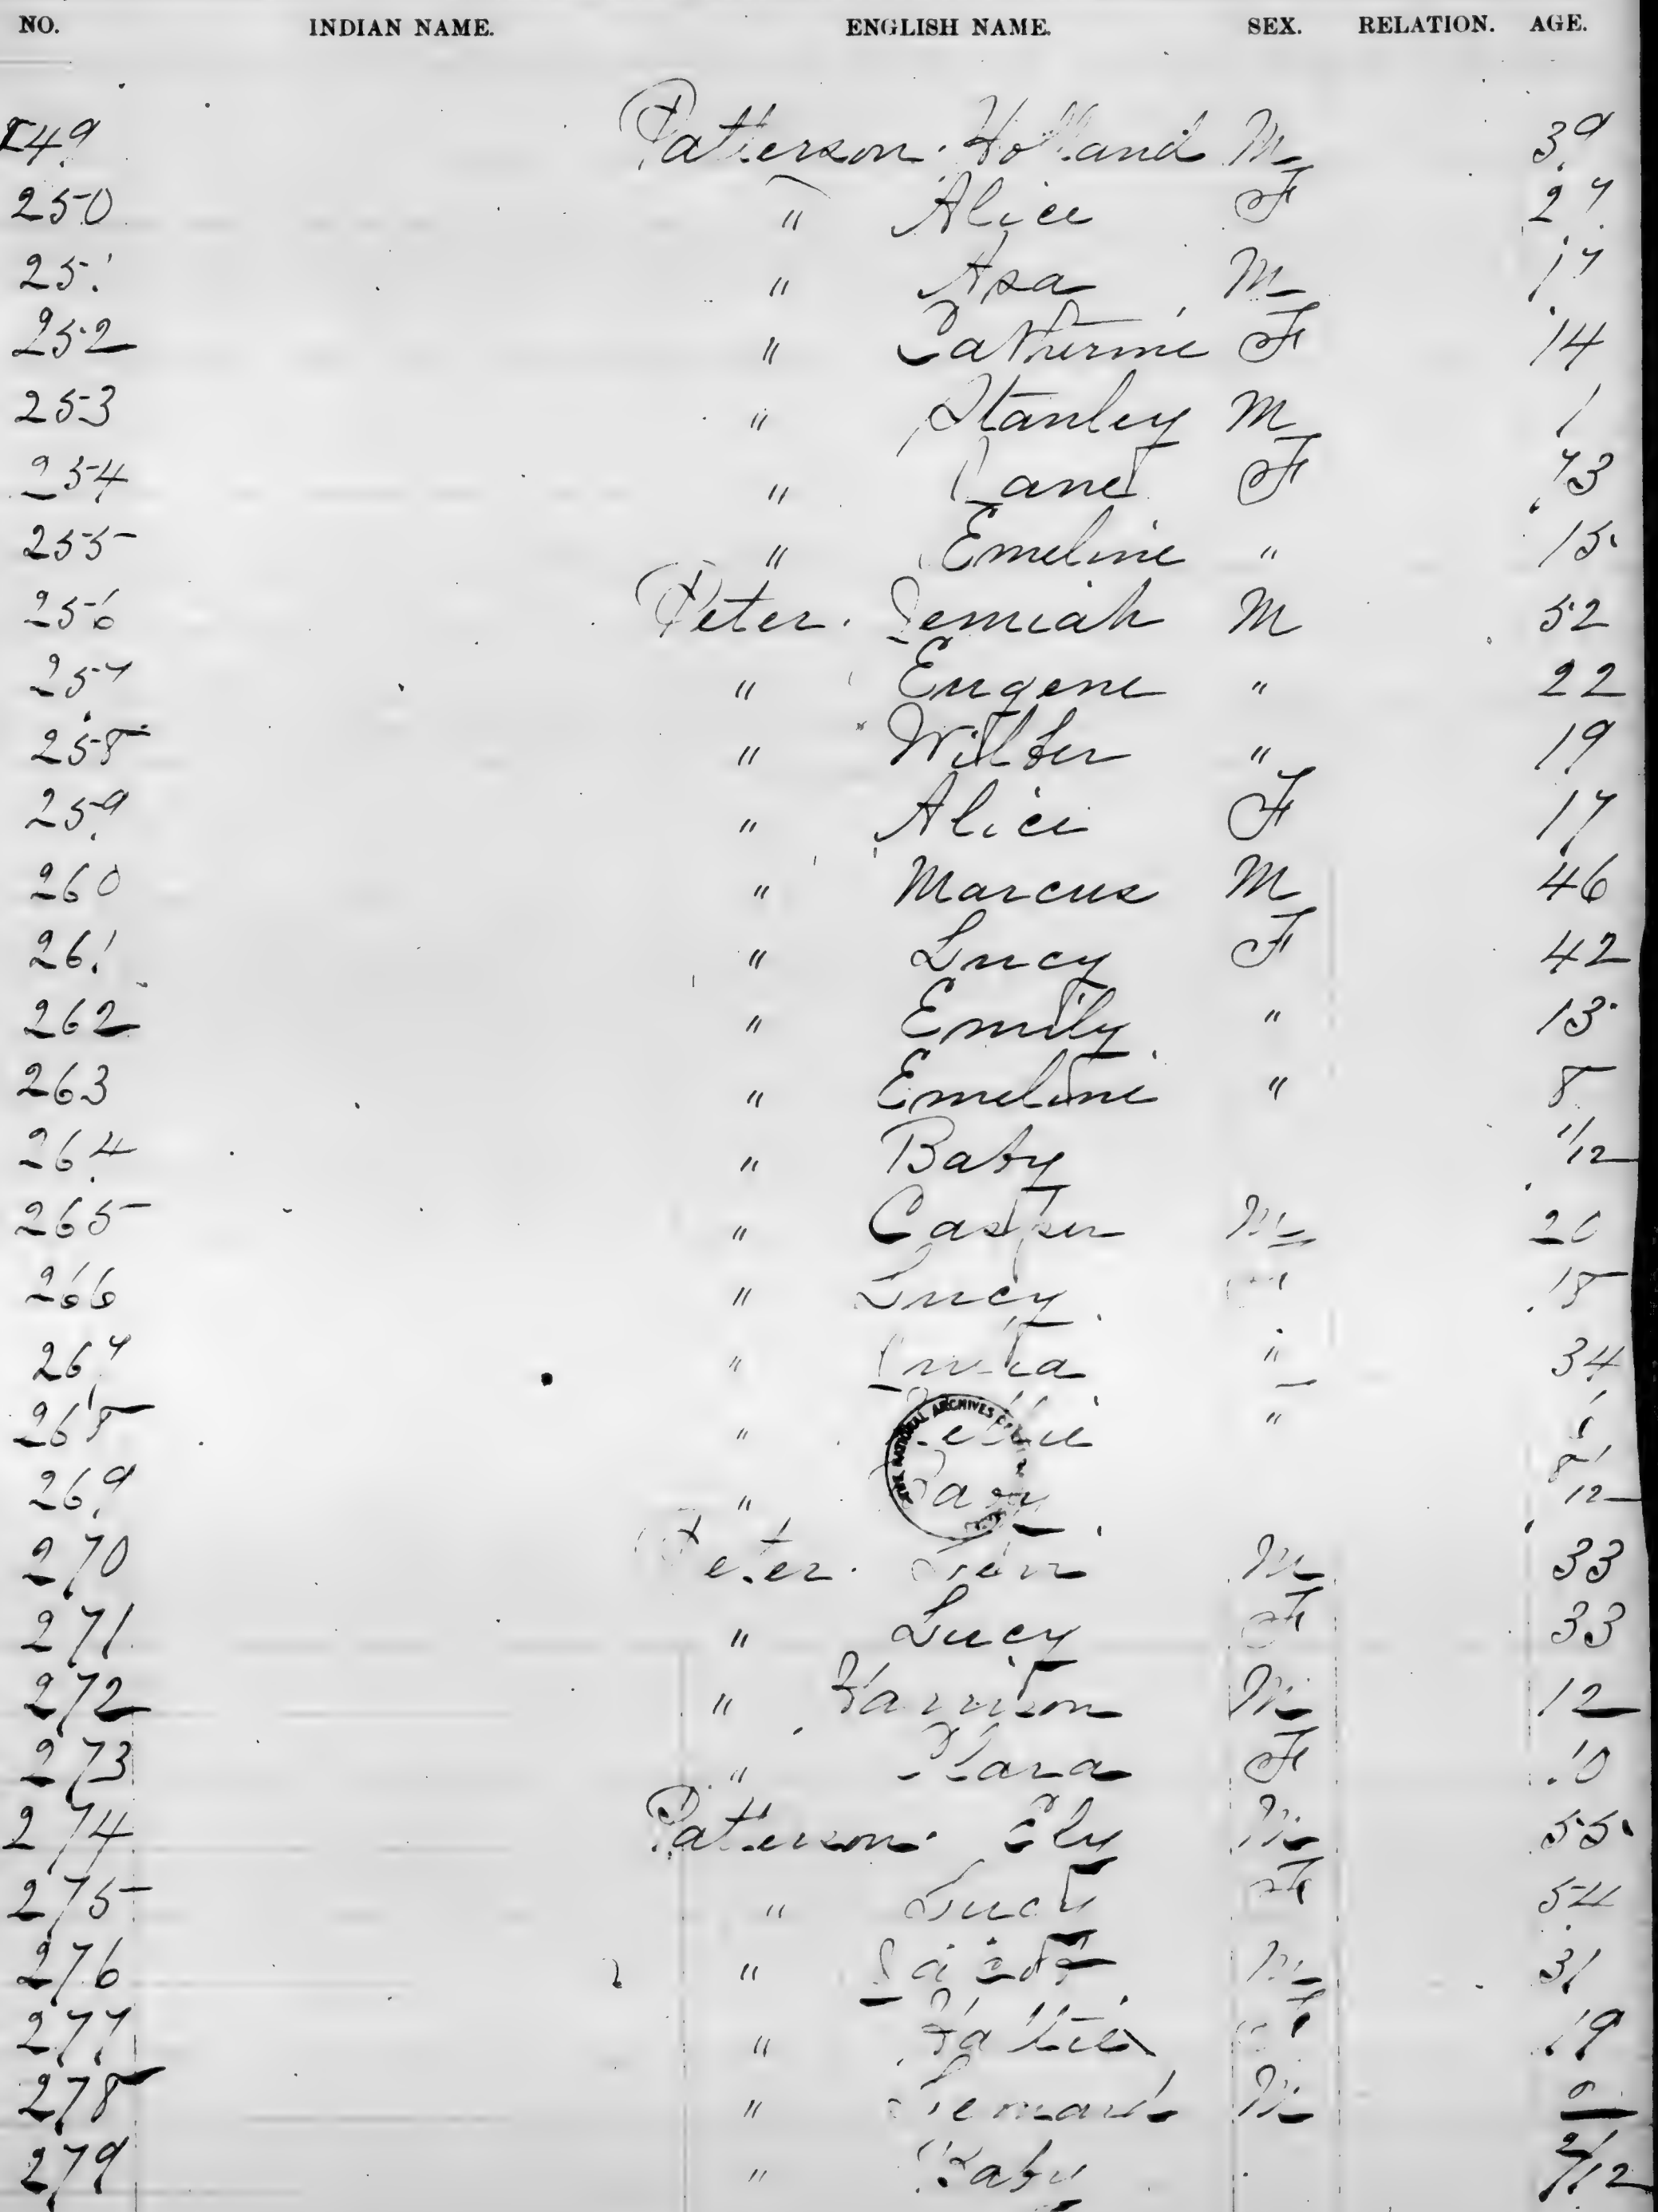 NO. INDIAN NAME. ENGLISH NAME. SEX. RELATION. AGE.
249 Patterson. Holland M 39
250 " Alice F 27
251 " Asa M 17
252 " Catherine F 14
253 " Stanley M 1
254 " Jane F 73
255 " Emeline " 15
256 Peter. Jemiah M 52
257 " Eugene " 22
258 " Wilber " 19
259 " Alice F 17
260 " Marcus M 46
261 " Lucy F 42
262 " Emily " 13
263 " Emeline " 8
264 " Baby 1/12
265 " Casper M 20
266 " Lucy F 18
267 " " 34
268 " "
THE NATIONAL ARCHIVES
269 " Baby 8/12
270 Peter. Levi M 33
271 " Lucy F 33
272 " Harrison M 12
273 " Clara F 10
274 Patterson. Ely M 55
275 " Lucy F 54
276 " M 31
277 " Hattie F 19
278 " M
279 " Baby 2/12